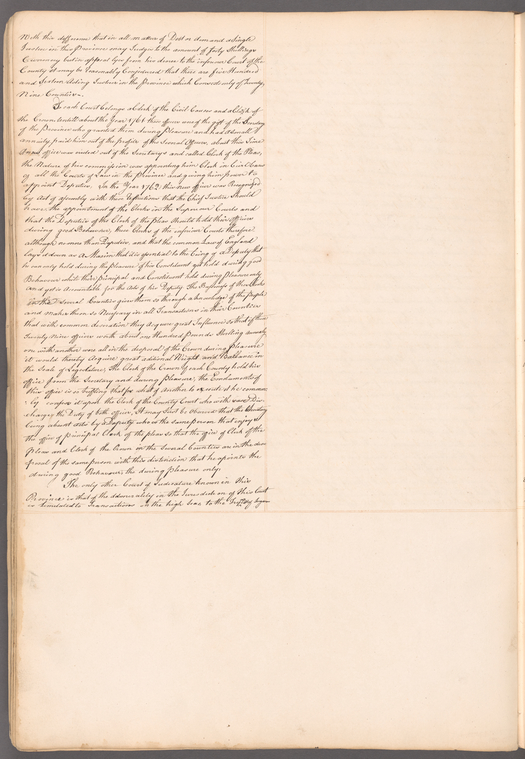 With this difference that in all matters of Debt or demand a Single
Justice in this Province may Judge to the amount of Forty Shillings
Currency but in appeal lyes from his decree to the inferiour Court of the
County it may be reasonably Conjectured that there are five Hundred
and Sixteen Acting Justices in the Province which Consists only of twenty
Nine Counties.
To each Court belongs a Clerk of the Civil Causes and a Clerk of
the Crown, untill about the Year 1761 these offices were of the gift of the Secretary
of the Province who granted them during Pleasure and had
annuity paid him out of the profits of the Several Offices, about this Time
office was ended out of the Secretarys and called Clerk of the Pleas,
the Nature of his commission was appointing him Clerk in Civil Causes
of all the Courts of Law in the Province and giving him power to
appoint Deputies. In the Year 1762 this new office was Recognized
by Act of Assembly with these that the Chief Justice Should
have the appointment of the Clerks in the Supreme Courts and
that the Deputies of the Clerk of the pleas should hold their offices
during good Behaviour, these Clerks of the inferiour Courts therefore
although no more than Deputies and that the common Law of England
lays it down as a Maxim that it is essential to the being of a Deputy that
he can only hold during the pleasure of his Constituent yet hold during good
Behaviour while their principal and Constituent hold during pleasure only
and yet is accountable for the Acts of his Deputy. The Business of these Clerks
in the Several Counties gives them so through a knowledge of the people
and makes them so Necessary in all Transactions in their Counties
that with common discretion they acquire great Influence so that if these
Twenty Nine offices worth about one Hundred Pounds Sterling annually
one with another was all in the disposal of the Crown during Pleasure
it would thereby Acquire great additional Weight and Ballance in
the Scale of Legislature, The Clerk of the Crown of each County holds his
office from the Secretary and during Pleasure, the Emoluments of
this office is so trifling that for want of Another to execute it he commonly
confers it upon the Clerk of the County Court who with ease Dis-
charges the Duty of both offices, It may Just be observed that the Secretary
being absent acts by a Deputy who is the same person that enjoys
the office of Principal Clerk of the pleas so that the office of Clerk of the
Pleas and Clerk of the Crown in the Several Counties are in the dis-
posal of the same person with this distinction that he appoints the
during good Behaviour the during pleasure only.
The only other Court of Judicature known in this
Province is that of the Admiralty in The Jurisdiction of This Court
is limited to Transactions in the high Seas to the